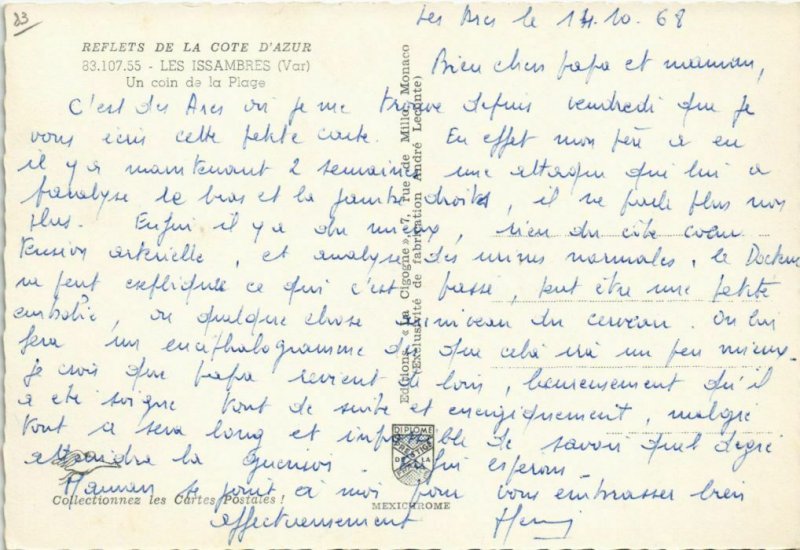 23
REFLETS DE LA COTE D'AZUR
83.107.55 - LES ISSAMBRES (Var)
Un coin de la Plage
Les Arcs le 14.10.68
Bien chers papa et maman,
C'est des Arcs où je me trouve depuis vendredi que je
vous écris cette petite carte. En effet mon père a eu
il y a maintenant 2 semaines une attaque qui lui a
paralysé le bras et la jambe droite, il ne parle plus non
plus. Enfin il y a du mieux, rien du côté coeur
tension artérielle, et analyse des urines normales, le Docteur
ne peut expliquer ce qui c'est passé, peut être une petite
embolie, ou quelque chose au niveau du cerveau. On lui
fera un encéphalogramme dès que celà ira un peu mieux.
Je crois que papa revient de loin, heureusement qu'il
a été soigné tout de suite et énergiquement, malgré
tout ça sera long et impossible de savoir quel degré
atteindra la guérison. Enfin espérons.
Maman se joint à moi pour vous embrasser bien
affectueusement Henri
Editions « La Cigogne », 7, rue de Millo, Monaco
(Exclusivité de fabrication André Leconte)
DIPLOME
PRESTIGE
DE LA
FRANCE
Collectionnez les Cartes Postales !
MEXICHROME